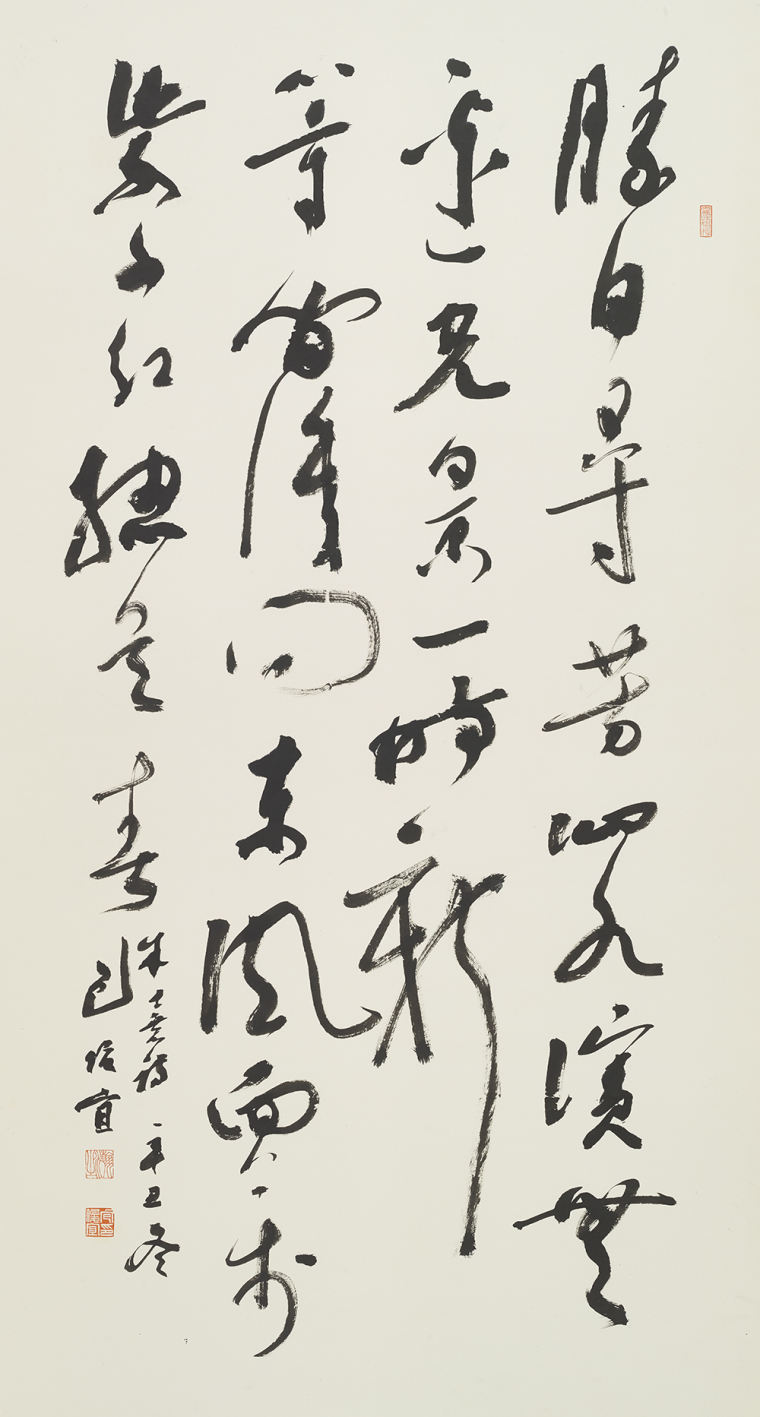 勝日尋芳泗水濱無
邊光景一時新
等閒識得東風面萬
紫千紅總是春
朱熹詩 辛丑冬